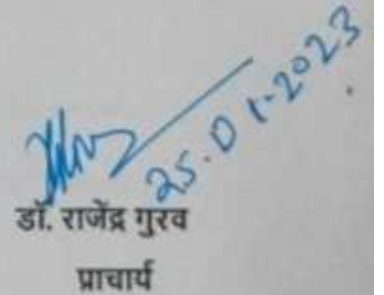 25.01.2023
डॉ. राजेंद्र गुरव
प्राचार्य